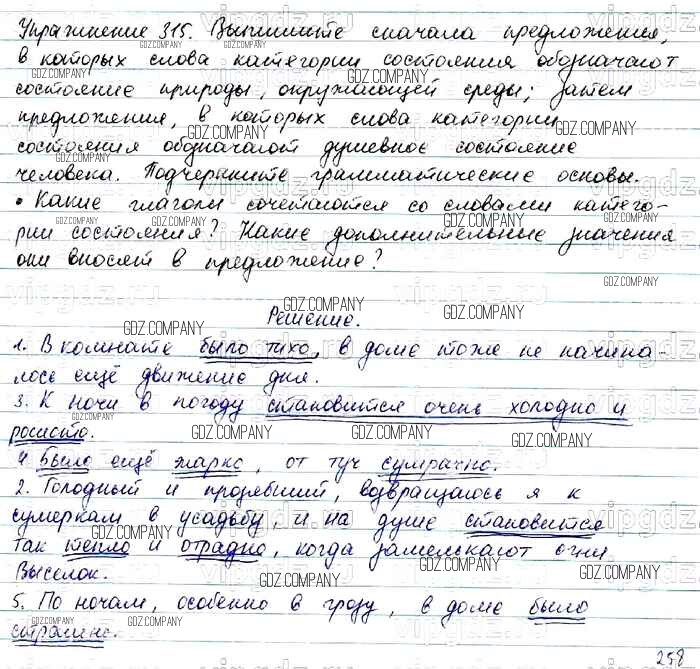 Упражнение 315. Выпишите сначала предложения,
в которых слова категории состояния обозначают
состояние природы, окружающей среды; затем
предложения, в которых слова категории
состояния обозначают душевное состояние
человека. Подчеркните грамматические основы.
• Какие глаголы сочетаются со словами катего-
рии состояния? Какие дополнительные значения
они вносят в предложение?
Решение.
1. В комнате было тихо, в доме тоже не начина-
лось ещё движение дня.
3. К ночи в погоду становится очень холодно и
росисто.
4. Было ещё жарко, от туч сумрачно.
2. Голодный и прозябший, возвращаюсь я к
сумеркам в усадьбу, и на душе становится
так тепло и отрадно, когда замелькают огни
Выселок.
5. По ночам, особенно в грозу, в доме было
страшно.
258